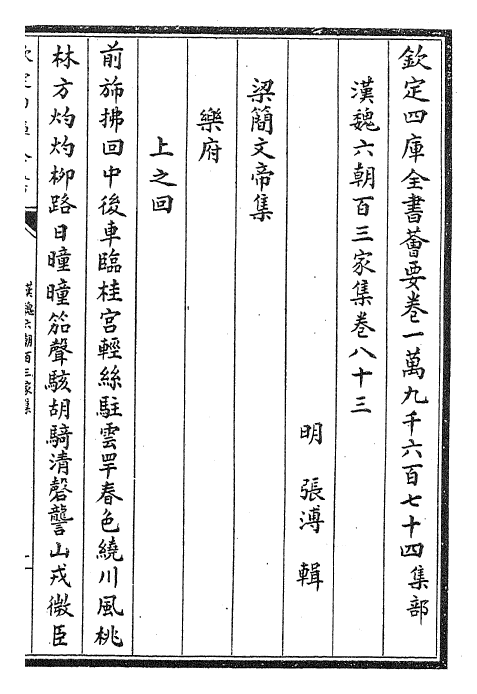 欽定四庫全書薈要卷一萬九千六百七十四集部
漢魏六朝百三家集卷八十三
明張溥輯
梁簡文帝集
樂府
上之回
前斾拂回中後車臨桂宮輕絲駐雲罕春色繞川風桃
林方灼灼栁路日曈曈笳聲駭胡騎清磬讋山戎微臣
漢魏六朝百三家集